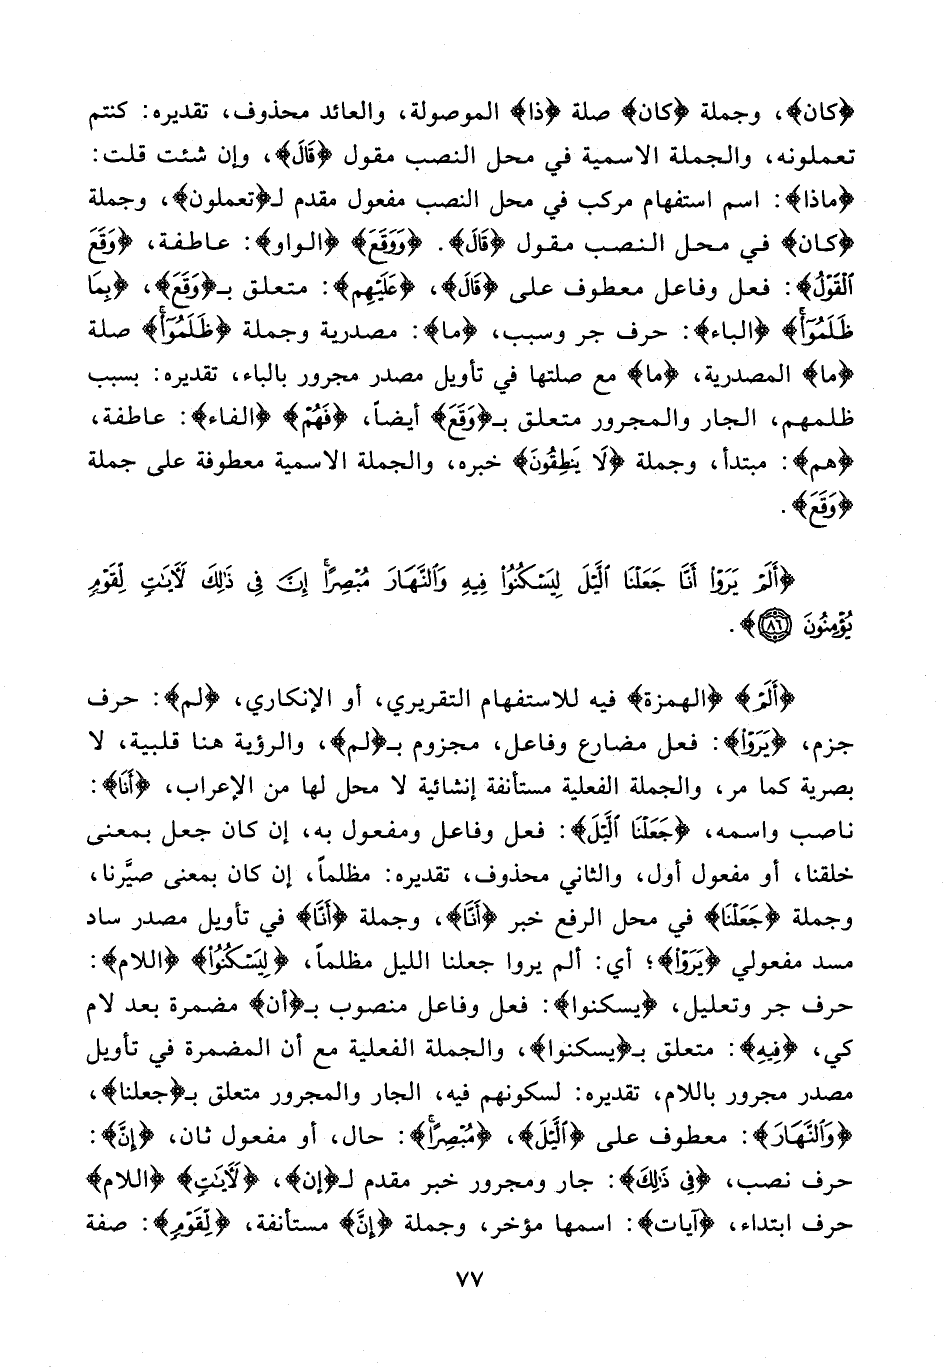 ﴿كان﴾، وجملة ﴿كان﴾ صلة ﴿ذا﴾ الموصولة، والعائد محذوف، تقديره: كنتم
تعملونه، والجملة الاسمية في محل النصب مقول ﴿قَالَ﴾، وإن شئت قلت:
﴿ماذا﴾: اسم استفهام مركب في محل النصب مفعول مقدم لـ﴿تعملون﴾، وجملة
﴿كان﴾ في محل النصب مقول ﴿قَالَ﴾. ﴿وَوَقَعَ﴾ ﴿الواو﴾: عاطفة، ﴿وَقَعَ
ٱلْقَوْلُ﴾: فعل وفاعل معطوف على ﴿قَالَ﴾، ﴿عَلَيْهِم﴾: متعلق بـ﴿وَقَعَ﴾، ﴿بِمَا
ظَلَمُوٓاْ﴾ ﴿الباء﴾: حرف جر وسبب، ﴿ما﴾: مصدرية وجملة ﴿ظَلَمُوٓاْ﴾ صلة
﴿ما﴾ المصدرية، ﴿ما﴾ مع صلتها في تأويل مصدر مجرور بالباء، تقديره: بسبب
ظلمهم، الجار والمجرور متعلق بـ﴿وَقَعَ﴾ أيضاً، ﴿فَهُمْ﴾ ﴿الفاء﴾: عاطفة،
﴿هم﴾: مبتدأ، وجملة ﴿لَا يَنطِقُونَ﴾ خبره، والجملة الاسمية معطوفة على جملة
﴿وَقَعَ﴾.
﴿أَلَمْ يَرَوْاْ أَنَّا جَعَلْنَا ٱلَّيْلَ لِيَسْكُنُواْ فِيهِ وَٱلنَّهَارَ مُبْصِرًاۚ إِنَّ فِى ذَٰلِكَ لَأٓيَٰتٍ لِّقَوْمٍ
يُؤْمِنُونَ ٨٦﴾.
﴿أَلَمْ﴾ ﴿الهمزة﴾ فيه للاستفهام التقريري، أو الإنكاري، ﴿لم﴾: حرف
جزم، ﴿يَرَوْاْ﴾: فعل مضارع وفاعل، مجزوم بـ﴿لم﴾، والرؤية هنا قلبية، لا
بصرية كما مر، والجملة الفعلية مستأنفة إنشائية لا محل لها من الإعراب، ﴿أَنَّا﴾:
ناصب واسمه، ﴿جَعَلْنَا ٱلَّيْلَ﴾: فعل وفاعل ومفعول به، إن كان جعل بمعنى
خلقنا، أو مفعول أول، والثاني محذوف، تقديره: مظلماً، إن كان بمعنى صيَّرنا،
وجملة ﴿جَعَلْنَا﴾ في محل الرفع خبر ﴿أَنَّا﴾، وجملة ﴿أَنَّا﴾ في تأويل مصدر ساد
مسد مفعولي ﴿يَرَوْاْ﴾؛ أي: ألم يروا جعلنا الليل مظلماً، ﴿لِيَسْكُنُواْ﴾ ﴿اللام﴾:
حرف جر وتعليل، ﴿يسكنوا﴾: فعل وفاعل منصوب بـ﴿أن﴾ مضمرة بعد لام
كي، ﴿فِيهِ﴾: متعلق بـ﴿يسكنوا﴾، والجملة الفعلية مع أن المضمرة في تأويل
مصدر مجرور باللام، تقديره: لسكونهم فيه، الجار والمجرور متعلق بـ﴿جعلنا﴾،
﴿وَٱلنَّهَارَ﴾: معطوف على ﴿ٱلَّيْلَ﴾، ﴿مُبْصِرًاۚ﴾: حال، أو مفعول ثان، ﴿إِنَّ﴾:
حرف نصب، ﴿فِى ذَٰلِكَ﴾: جار ومجرور خبر مقدم لـ﴿إن﴾، ﴿لَأٓيَٰتٍ﴾ ﴿اللام﴾
حرف ابتداء، ﴿آيات﴾: اسمها مؤخر، وجملة ﴿إِنَّ﴾ مستأنفة، ﴿لِّقَوْمٍ﴾: صفة
٧٧